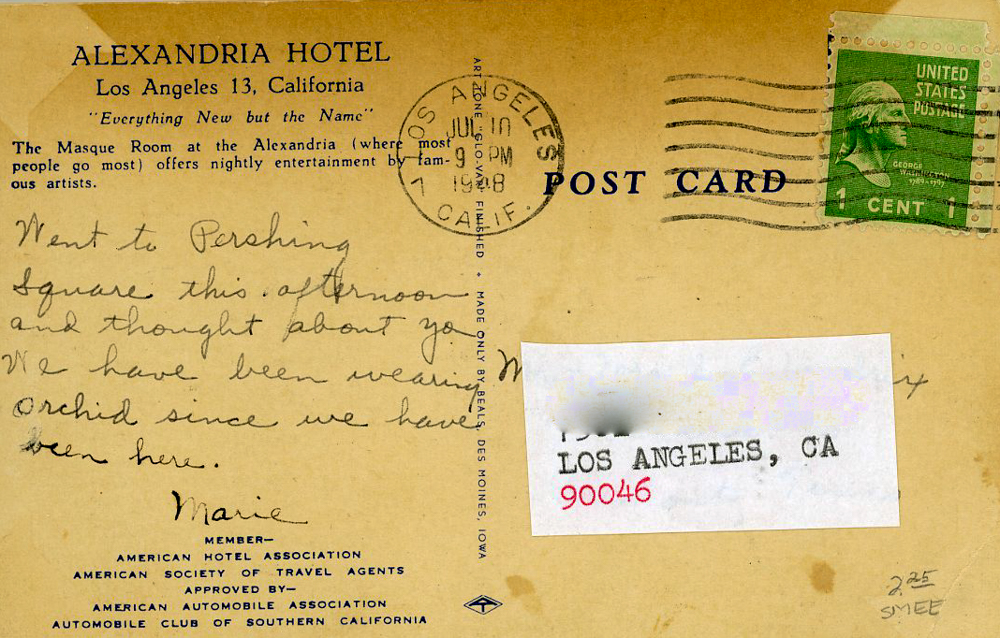 ALEXANDRIA HOTEL
Los Angeles 13, California
"Everything New but the Name"
The Masque Room at the Alexandria (where most
people go most) offers nightly entertainment by fam-
ous artists.
Went to Pershing
Square this afternoon
and thought about yo
We have been wearing
Orchid since we have
been here.
Marie
MEMBER—
AMERICAN HOTEL ASSOCIATION
AMERICAN SOCIETY OF TRAVEL AGENTS
APPROVED BY—
AMERICAN AUTOMOBILE ASSOCIATION
AUTOMOBILE CLUB OF SOUTHERN CALIFORNIA
ART TONE "GLO-VAR" FINISHED ✦ MADE ONLY BY BEALS, DES MOINES, IOWA
LOS ANGELES
JUL 10
9 PM
1948
CALIF.
POST CARD
UNITED
STATES
POSTAGE
GEORGE
WASHINGTON
1789-1797
1 CENT 1
M
LOS ANGELES, CA
90046
2.25
SMEE